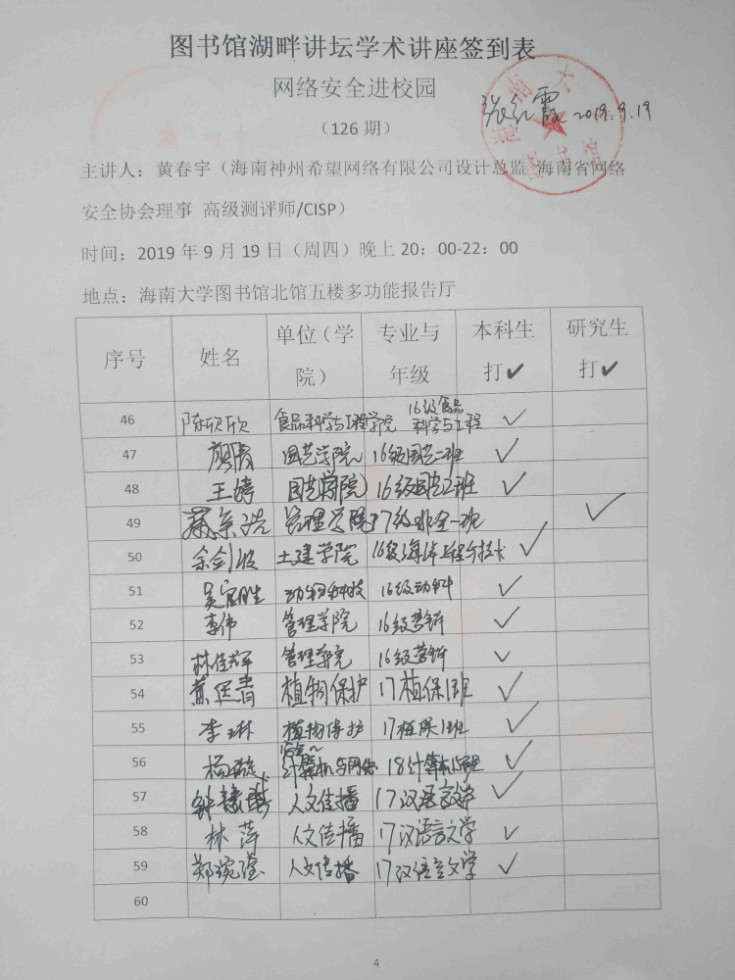 图书馆湖畔讲坛学术讲座签到表
网络安全进校园
2019.9.19
（126期）
主讲人：黄春宇（海南神州希望网络有限公司设计总监 海南省网络
安全协会理事 高级测评师/CISP）
时间：2019年9月19日（周四）晚上20：00-22：00
地点：海南大学图书馆北馆五楼多功能报告厅
序号 姓名 单位（学院） 专业与年级 本科生打✔ 研究生打✔
46 陈欣欣 食品科学与工程学院 16级食品科学与工程 ✓
47 园艺学院 16级园艺二班 ✓
48 王婷 园艺学院 16级园艺2班 ✓
49 管理学院 17级 一班 ✓
50 余剑波 土建学院 16级海洋工程与技术 ✓
51 动科 16级动科 ✓
52 李伟 管理学院 16级营销 ✓
53 林佳辉 管理学院 16级营销 ✓
54 植物保护 17植保1班 ✓
55 李琳 植物保护 17植保1班 ✓
56 杨 计算机与网络安全 18计算机 班 ✓
57 钟慧 人文传播 17汉语言文学 ✓
58 林萍 人文传播 17汉语言文学 ✓
59 郑琬滢 人文传播 17汉语言文学 ✓
60
4